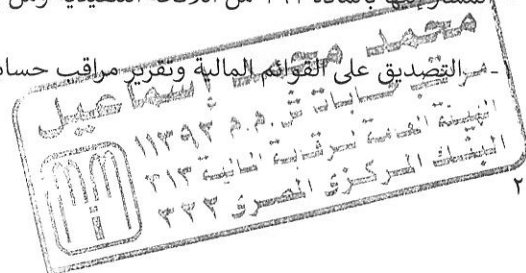 المشار إليها بالمادة
- التصديق على القوائم المالية وتقرير مراقب
محمد محمد إسماعيل
مراقب حسابات س.م.م ١١٣٩٢
الهيئة العامة للرقابة المالية ٢١٣
البنك المركزي المصري ٢٢٢
٢